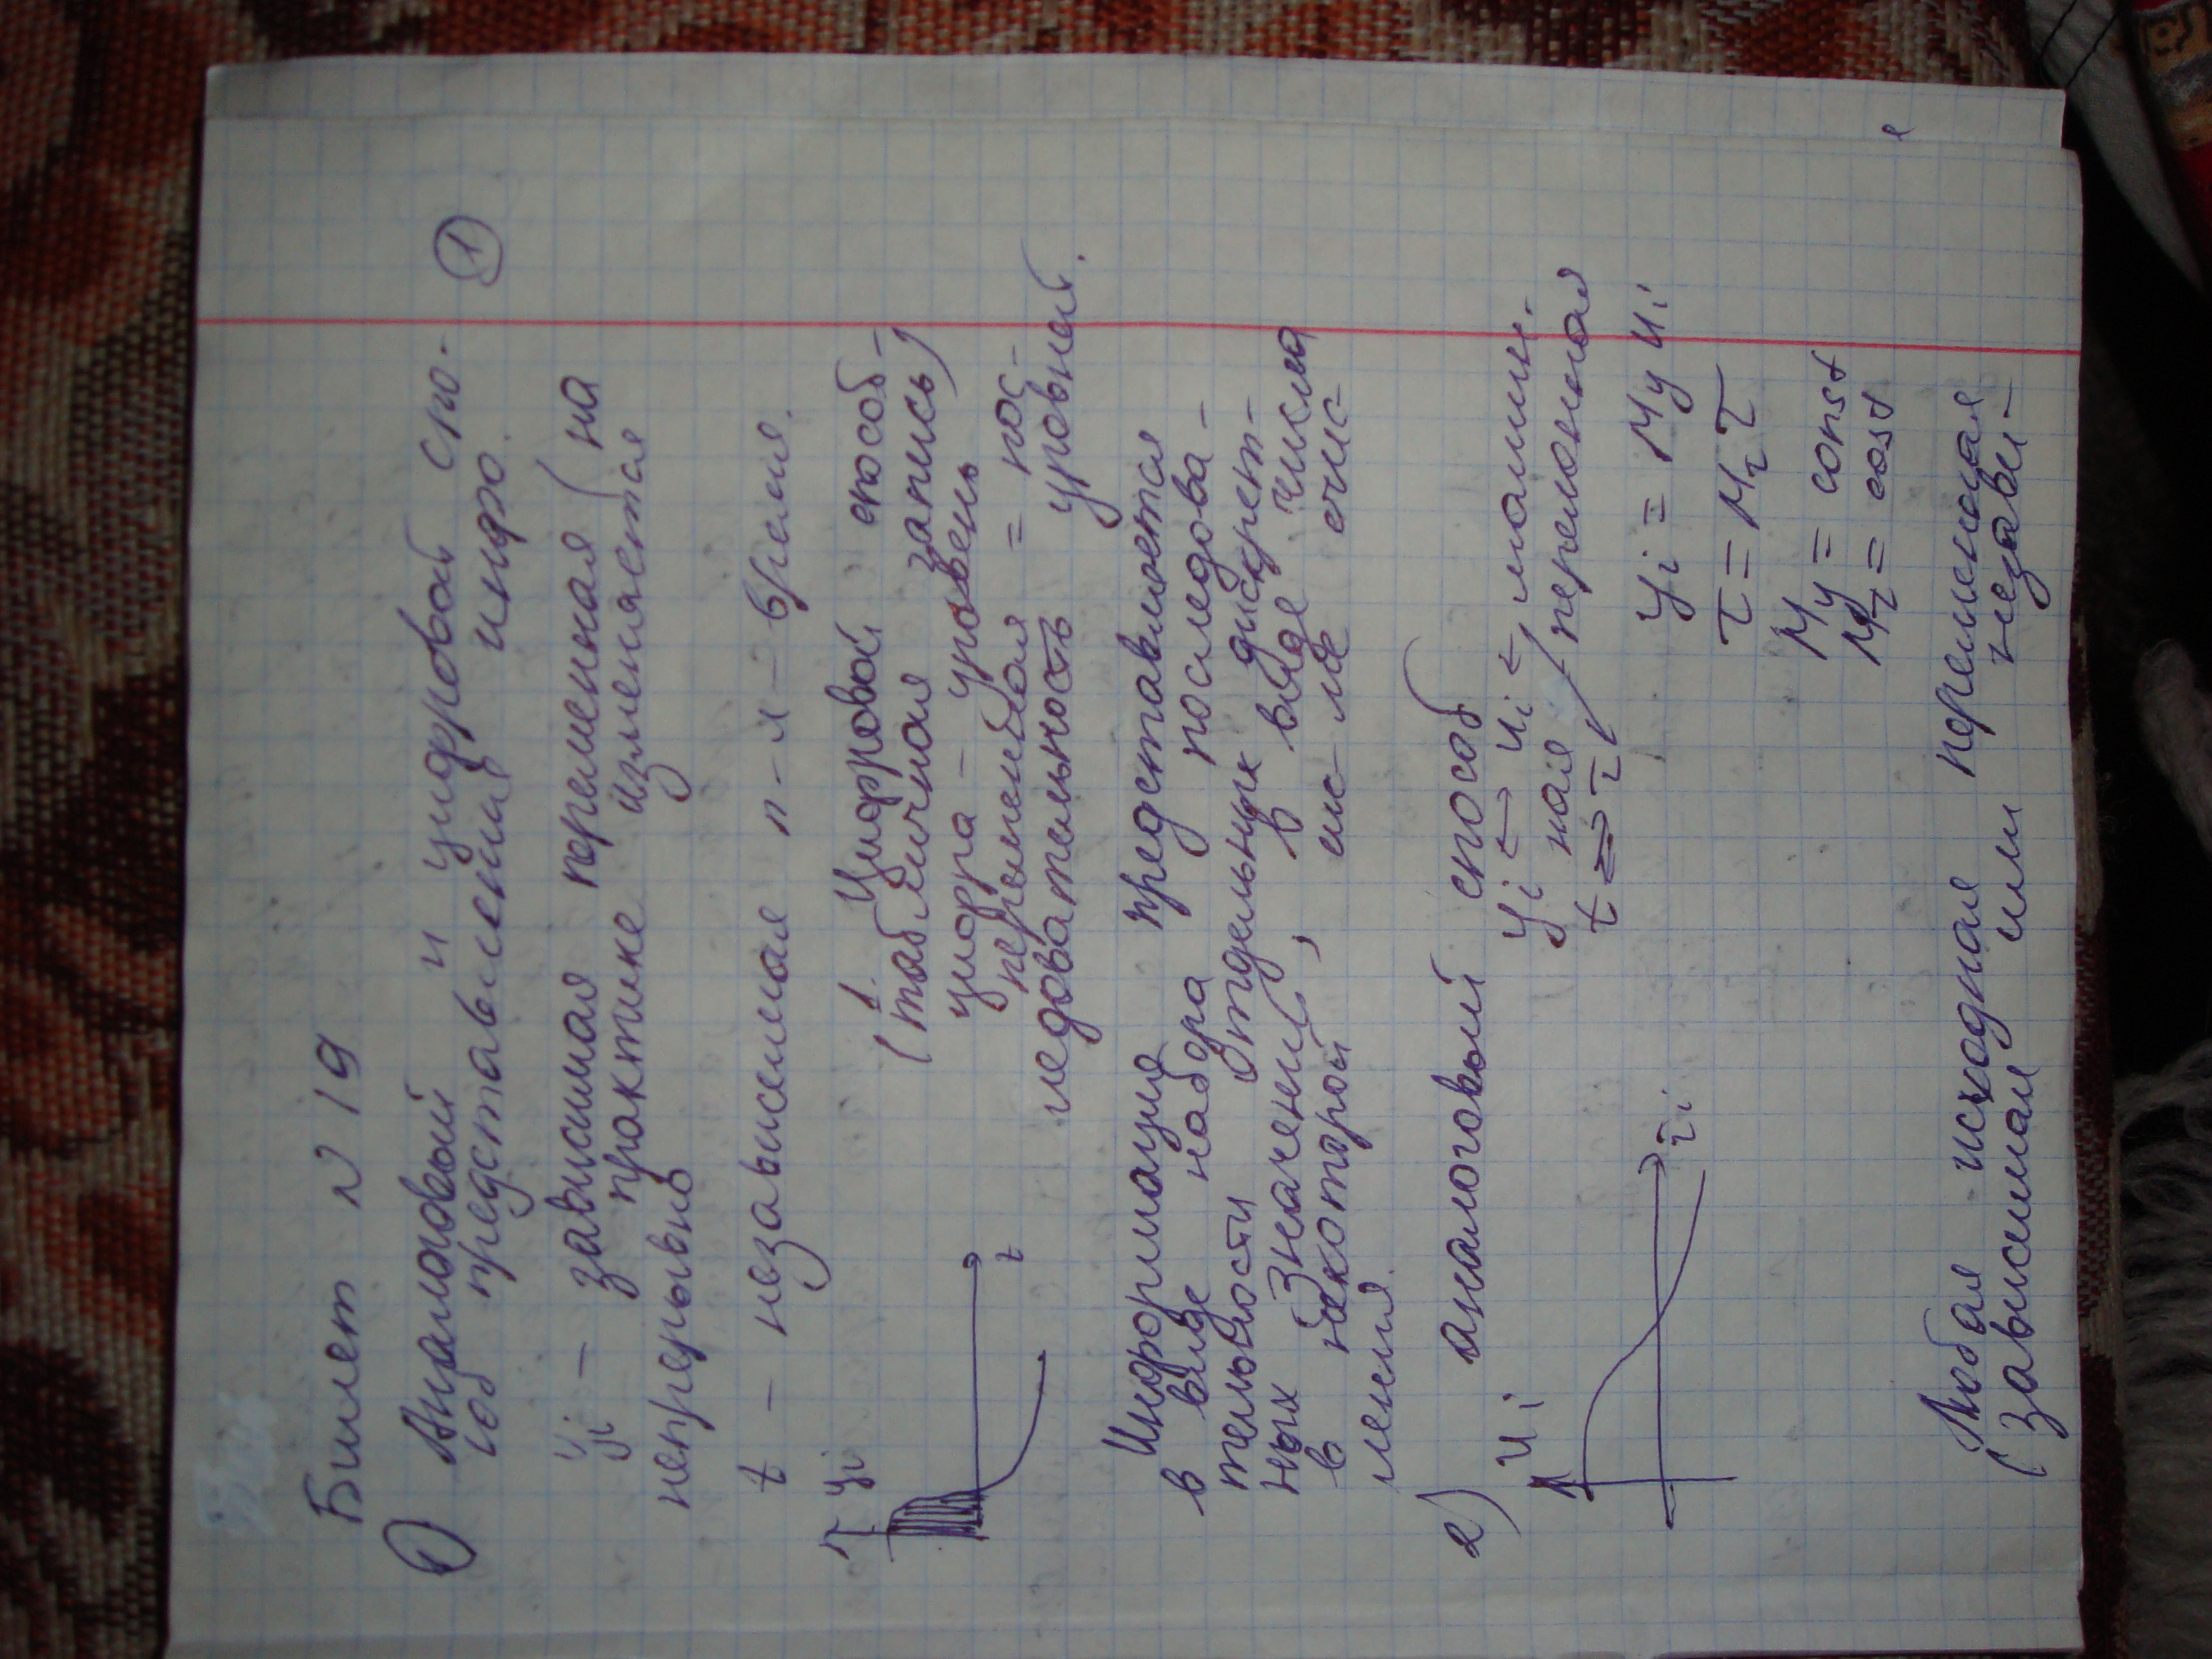 Билет N 19
①
1) Аналоговый и цифровой спо-
соб представлений инфо.
yi – зависимая переменная (на
практике изменяется
непрерывно
t – независимая п-я – время.
yi
t
1. Цифровой способ –
(табличная запись)
цифра – уровень
переменная = пос-
ледовательность уровней.
Информация представляется
в виде набора последова-
тельности отдельных дискрет-
ных значений, в виде числа
в некоторой сис-ме счис-
ления.
2) аналоговый способ
ui
τi
yi ⇔ ui < машин-
ная переменная
t ⇔ τ
yi = My ui
τ = Mτ τ
My = const
Mτ = cost
Любая исходная переменная
(зависимая или незави-